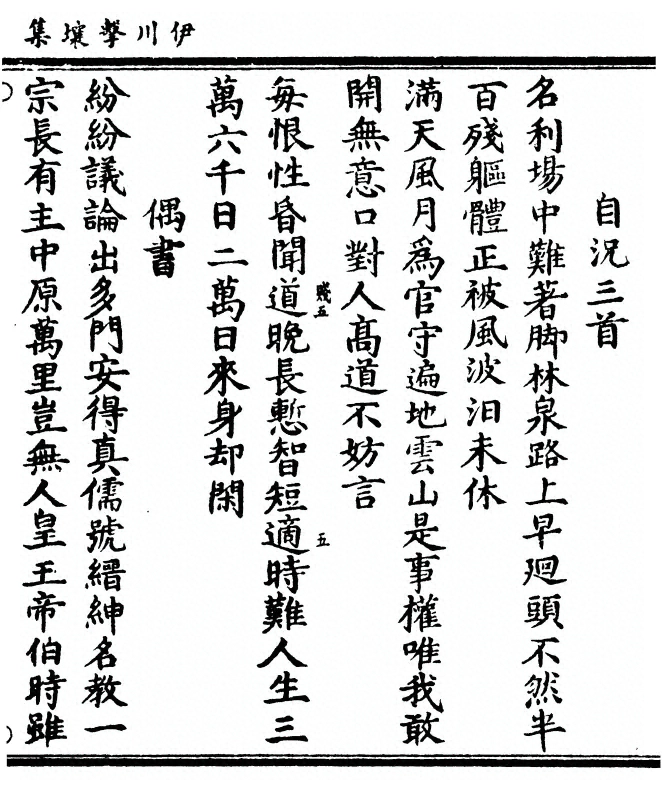 伊川擊壤集
自況三首
名利場中難著脚林泉路上早廻頭不然半
百殘軀體正被風波汨未休
滿天風月爲官守遍地雲山是事權唯我敢
開無意口對人高道不妨言
每恨性昏聞道晚長慙智短適時難人生三
萬六千日二萬日來身却閑
偶書
紛紛議論出多門安得真儒號縉紳名教一
宗長有主中原萬里豈無人皇王帝伯時雖